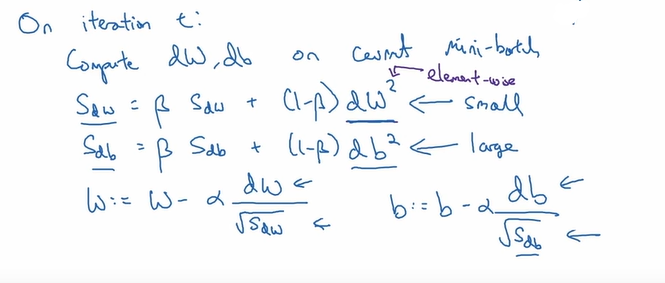 On iteration t:
Compute dW, db on current mini-batch
element-wise
S_dw = β S_dw + (1-β) dW² ← small
S_db = β S_db + (1-β) db² ← large
W := W - α dW/√S_dw ← b := b - α db/√S_db ←